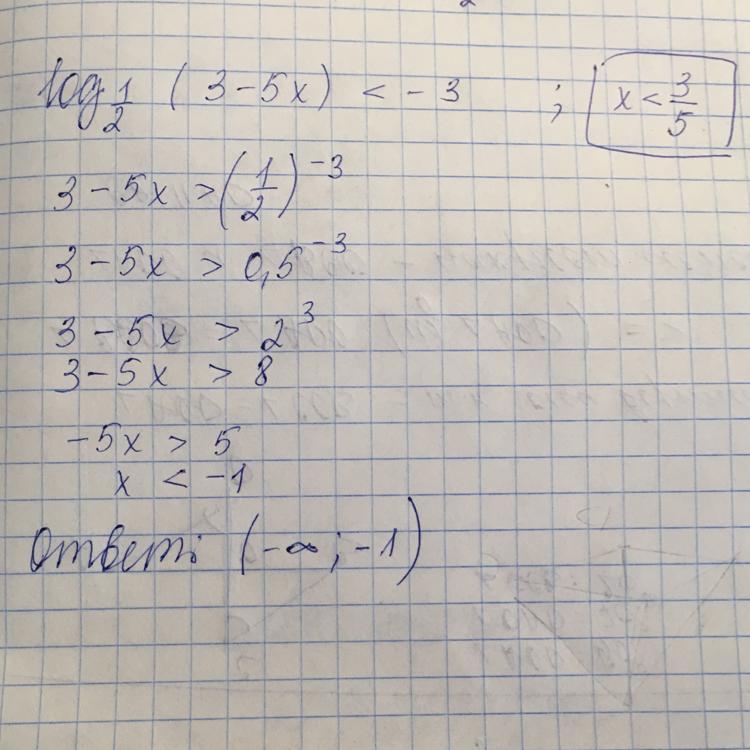 log_{1/2} (3 - 5x) < -3 ; x < 3/5
3 - 5x > (1/2)^{-3}
3 - 5x > 0,5^{-3}
3 - 5x > 2^3
3 - 5x > 8
-5x > 5
x < -1
Ответ: (-∞; -1)